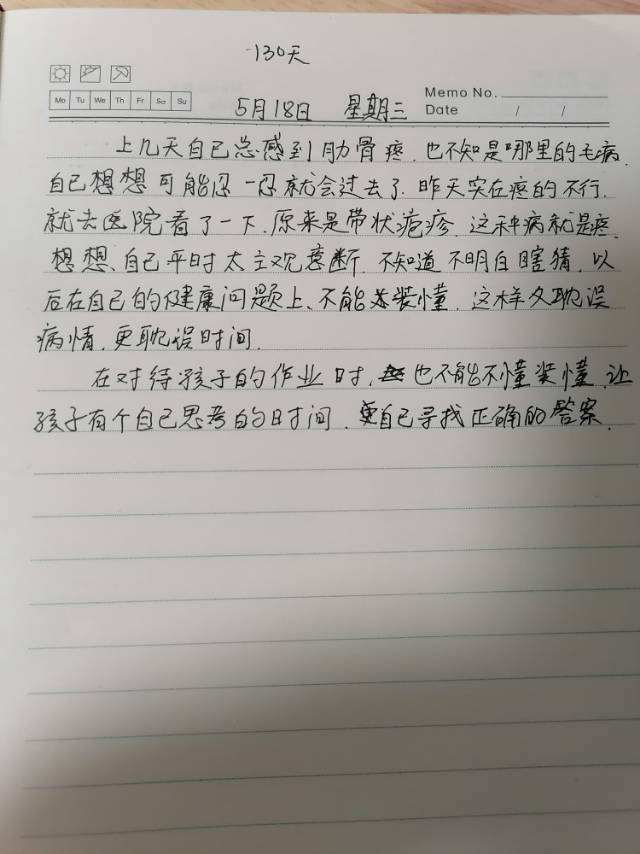 130天
Mo Tu We Th Fr Sa Su
Memo No.
5月18日 星期三 Date / /
上几天自己总感到肋骨疼.也不知是哪里的毛病.
自己想想可能忍一忍就会过去了.昨天实在疼的不行.
就去医院看了一下.原来是带状疱疹.这种病就是疼.
想想、自己平时太主观意断.不知道不明白瞎猜.以
后在自己的健康问题上、不能装懂.这样又耽误
病情.更耽误时间.
在对待孩子的作业时,也不能不懂装懂.让
孩子有个自己思考的时间.自己寻找正确的答案.